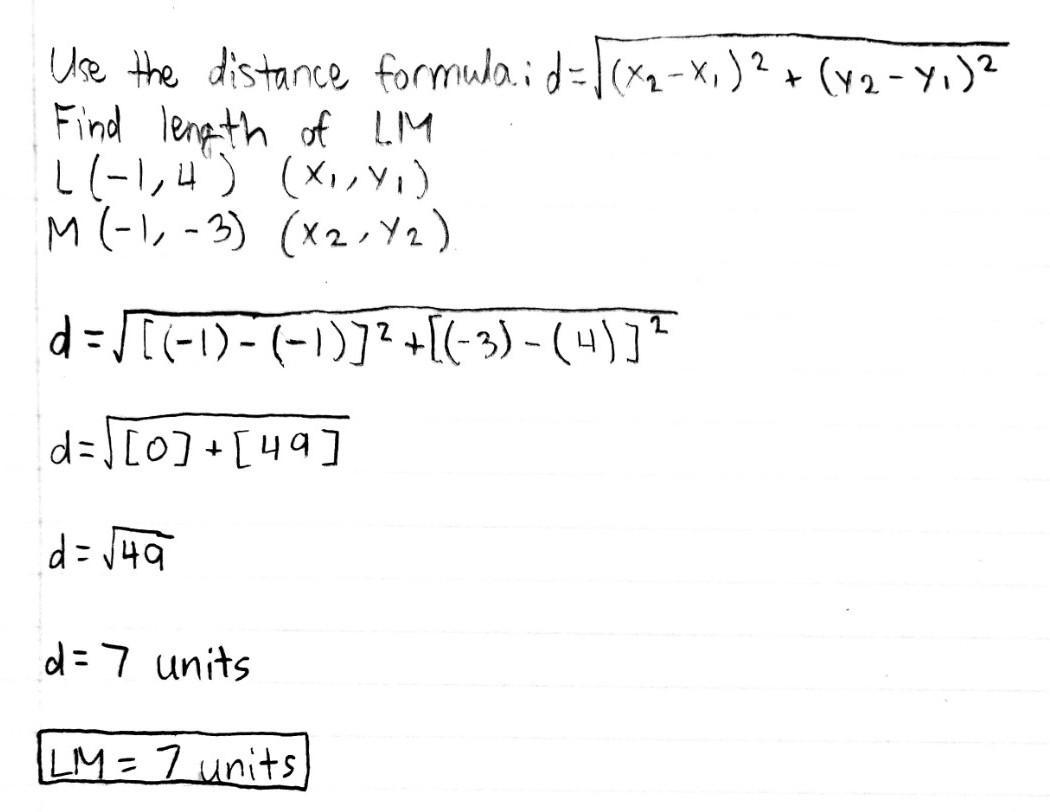 Use the distance formula: d=√(x₂-x₁)² + (y₂-y₁)²
Find length of LM
L (-1, 4) (x₁, y₁)
M (-1, -3) (x₂, y₂)
d = √[(-1) - (-1)]² + [(-3) - (4)]²
d = √[0] + [49]
d = √49
d = 7 units
LM = 7 units